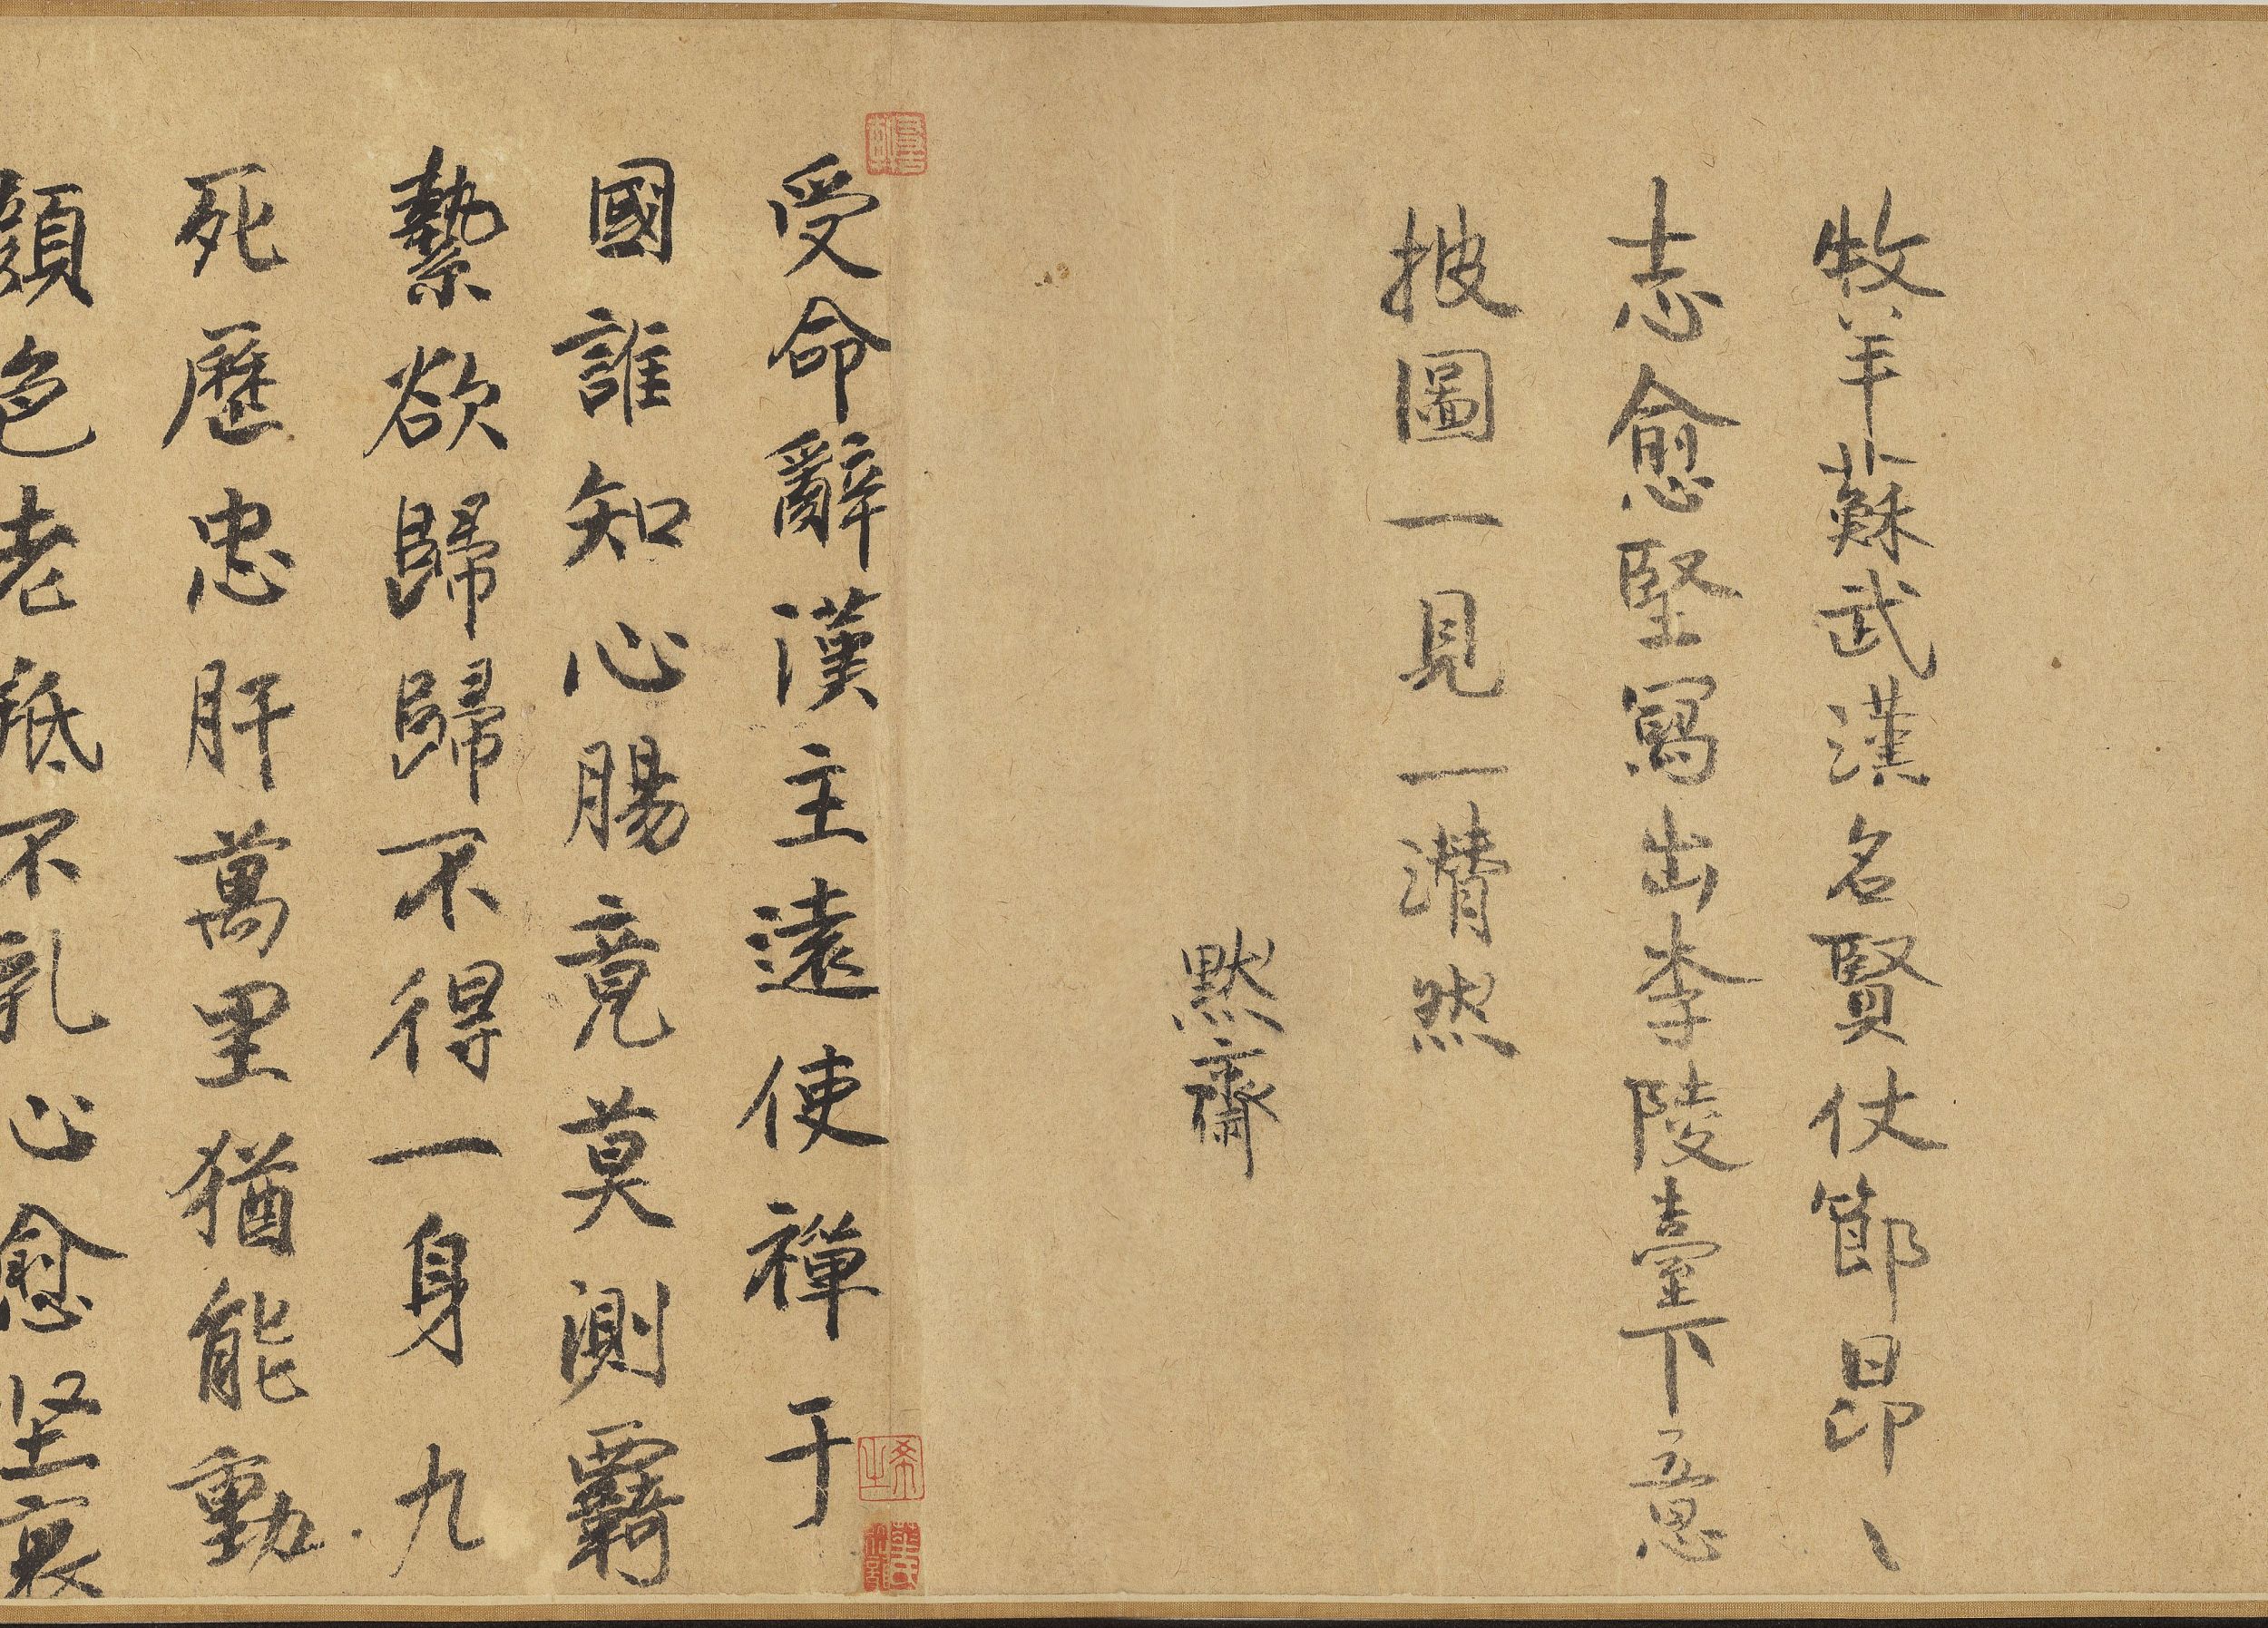 牧羊蘇武漢名賢仗節昂〻
志愈堅寫出李陵臺下意
披圖一見一潸然
默齋
受命辭漢主遠使禪于
國誰知心腸竟莫測羈
縶欲歸歸不得一身九
死歷忠肝萬里猶能動
顏色老羝不乳心愈坚裏